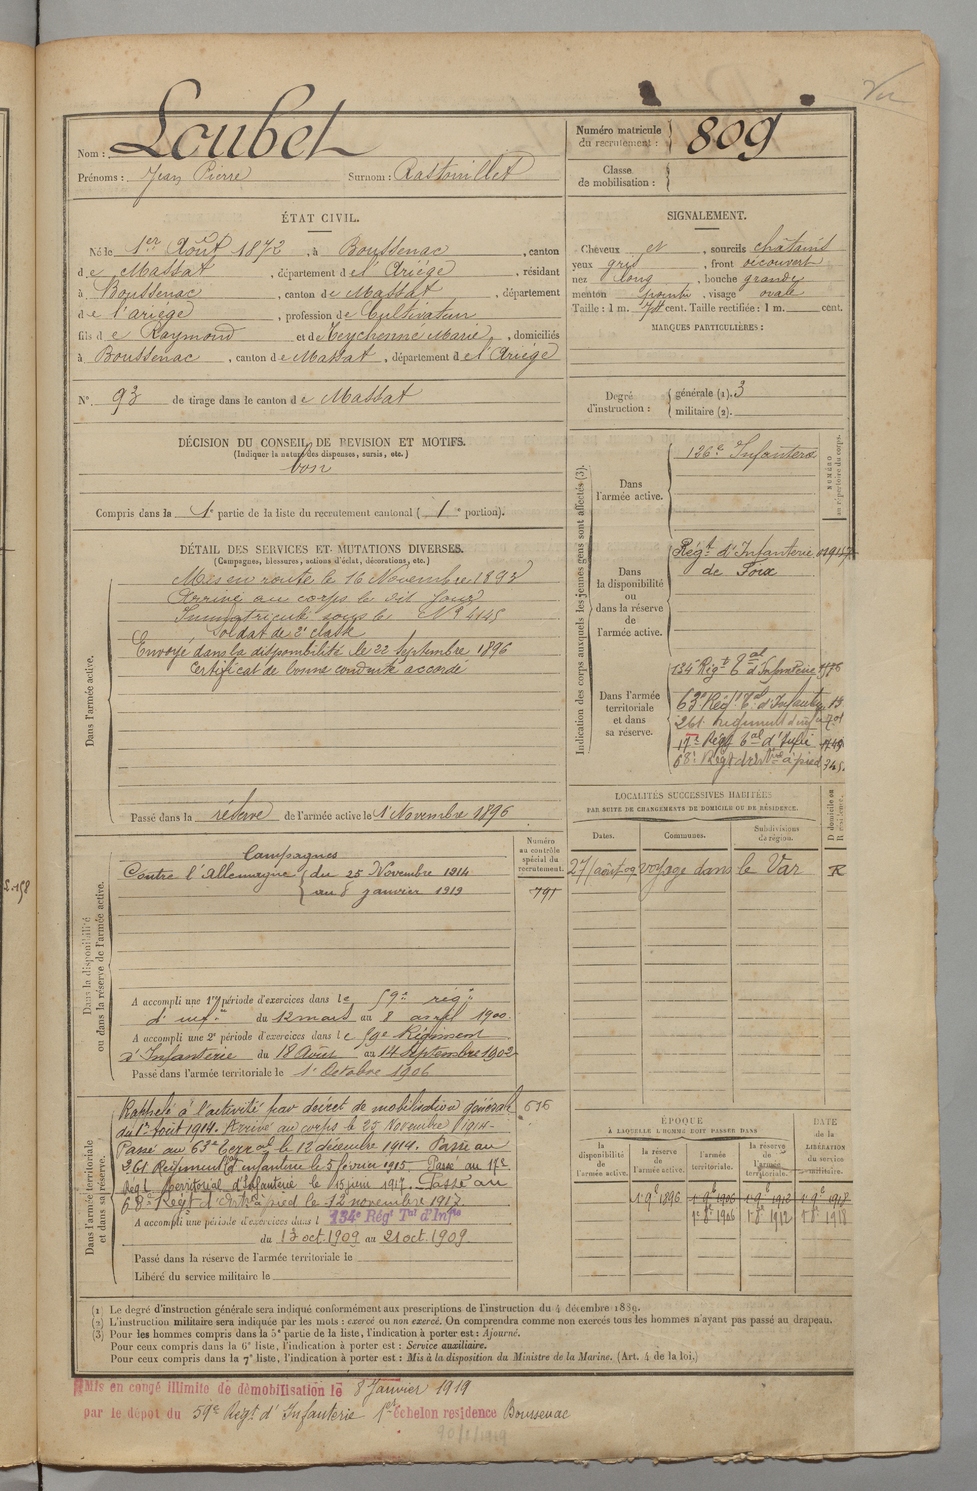 Nom : Loubet
Prénoms : Jean Pierre Surnom : Rastouillet
Numéro matricule du recrutement : 809
Classe de mobilisation :
ÉTAT CIVIL.
Né le 1er Août 1872, à Boussenac, canton
de Massat, département de l'Ariège, résidant
à Boussenac, canton de Massat, département
de l'ariège, profession de Cultivateur
fils de Raymond et de Teychenné Marie, domiciliés
à Boussenac, canton de Massat, département de l'Ariège
N° 93 de tirage dans le canton de Massat
SIGNALEMENT.
Cheveux et, sourcils châtains
yeux gris, front découvert
nez long, bouche grande
menton pointu, visage ovale
Taille : 1 m. cent. Taille rectifiée : 1 m. cent.
MARQUES PARTICULIÈRES :
Degré d'instruction : générale (1). 3
militaire (2).
DÉCISION DU CONSEIL DE REVISION ET MOTIFS.
(Indiquer la nature des dispenses, sursis, etc.)
bon
Compris dans la 1e partie de la liste du recrutement cantonal ( 1e portion).
DÉTAIL DES SERVICES ET MUTATIONS DIVERSES.
(Campagnes, blessures, actions d'éclat, décorations, etc.)
Dans l'armée active.
Mis en route le 16 Novembre 1893
Arrivé au corps le dit jour
Immatriculé sous le N° 4145
Soldat de 2e classe
Envoyé dans la disponibilité le 22 Septembre 1896
Certificat de bonne conduite accordé
Passé dans la réserve de l'armée active le 1er Novembre 1896
Indication des corps auxquels les jeunes gens sont affectés (3).
NUMÉRO au répertoire du corps.
Dans l'armée active.
126e Infanterie
Dans la disponibilité ou dans la réserve de l'armée active.
Régt d'Infanterie
de Foix
Dans l'armée territoriale et dans sa réserve.
134e Régt Tal d'Infanterie
63e Régt Tal d'Infant
261 Régiment d'inf
17e Régt Tal d'Infie
68e Régt à pied 345.
LOCALITÉS SUCCESSIVES HABITÉES
PAR SUITE DE CHANGEMENTS DE DOMICILE OU DE RÉSIDENCE.
Dates. Communes. Subdivisions de région. D domicile ou R résidence.
27 août 09 voyage dans le Var R
Dans la disponibilité ou dans la réserve de l'armée active.
Numéro au contrôle spécial du recrutement.
791
Campagnes
Contre l'Allemagne du 25 Novembre 1914
au 8 janvier 1919
A accompli une 1re période d'exercices dans le 59e régt
d'inf.ie du 12 mars au 8 avril 1900
A accompli une 2e période d'exercices dans le 59e Régiment
d'Infanterie du 18 Août au 14 Septembre 1902
Passé dans l'armée territoriale le 1er Octobre 1906
Dans l'armée territoriale et dans sa réserve.
Rappelé à l'activité par décret de mobilisation générale
du 1er Août 1914. Arrivé au corps le 25 Novembre 1914
Passé au 63e Terral le 12 décembre 1914. Passé au
261 Régiment d'infanterie le 5 février 1915. Passé au 17e
Régt Territorial d'Infanterie le 15 juin 1917. Passé au
68e Régt d'Artie à pied le 12 novembre 1917
A accompli une période d'exercices dans l 134e Régt Tal d'Infie
du 13 oct. 1909 au 21 oct. 1909.
Passé dans la réserve de l'armée territoriale le
Libéré du service militaire le
ÉPOQUE
À LAQUELLE L'HOMME DOIT PASSER DANS
la disponibilité de l'armée active. la réserve de l'armée active. l'armée territoriale. la réserve de l'armée territoriale. DATE de la LIBÉRATION du service militaire.
1er 9e 1896 1er 9e 1906 1er 9e 1912 1er 9e 1918
1er 8e 1906 1er 8e 1912 1er 8e 1918
(1) Le degré d'instruction générale sera indiqué conformément aux prescriptions de l'instruction du 4 décembre 1889.
(2) L'instruction militaire sera indiquée par les mots : exercé ou non exercé. On comprendra comme non exercés tous les hommes n'ayant pas passé au drapeau.
(3) Pour les hommes compris dans la 5e partie de la liste, l'indication à porter est : Ajourné.
Pour ceux compris dans la 6e liste, l'indication à porter est : Service auxiliaire.
Pour ceux compris dans la 7e liste, l'indication à porter est : Mis à la disposition du Ministre de la Marine. (Art. 4 de la loi.)
Mis en congé illimité de démobilisation le 8 Janvier 1919
par le dépôt du 59e Régt d'Infanterie 1er échelon résidence Boussenac